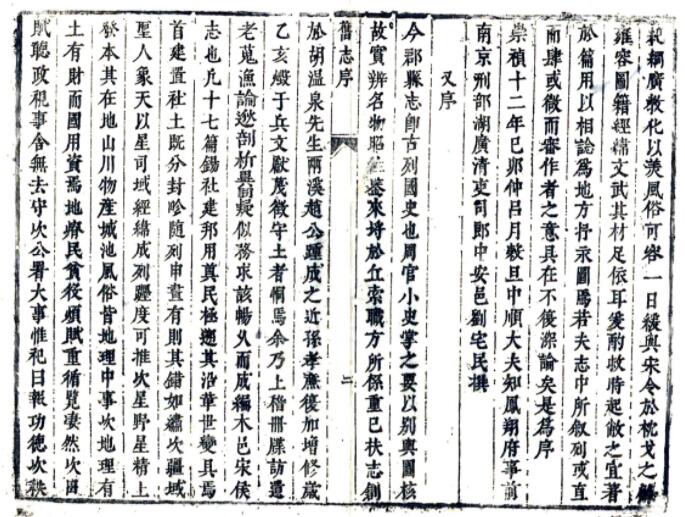 紀綱廣教化以美風俗可容一日緩與宋令於枕戈之
雍容圖籍經緯文武其材足依耳爰酌救時起敝之宜著
於篇用以相諗爲地方抒示圖焉若夫志中所叙列或直
而肆或微而審作者之意具在不復深論矣是爲序
崇禎十二年己卯仲吕月穀旦中順大夫知鳳翔府事前
南京刑部湖廣清吏司郎中安邑劉宅民撰
又序
今郡縣志卽古列國史也周官小史掌之要以別輿圖核
故實辨名物昭 來埒於丘索職方所係重已扶志創
舊志序
二
於胡温泉先生兩漢趙公踵成之近孫孝廉復加增修歲
乙亥燬于兵文獻蔑徵守土者恫焉余乃上稽冊牒訪遺
老蒐漁論逖剖析異同疑似務求該暢久而成編木邑宋侯
志也凡十七篇錫社建邦用奠民極遡其沿革世變具焉
首建置社土既分封畛随列申畫有則其錯如繡次疆域
聖人象天以星司域經緯成列躔度可推次星野星精上
發本其在地山川物産城池風俗皆地理中事次地理有
土有財而國用資焉地瘠民貧役煩賦重循覽凄然次田
賦聽政視事舍無去守次公署大事惟祀日報功德次秩